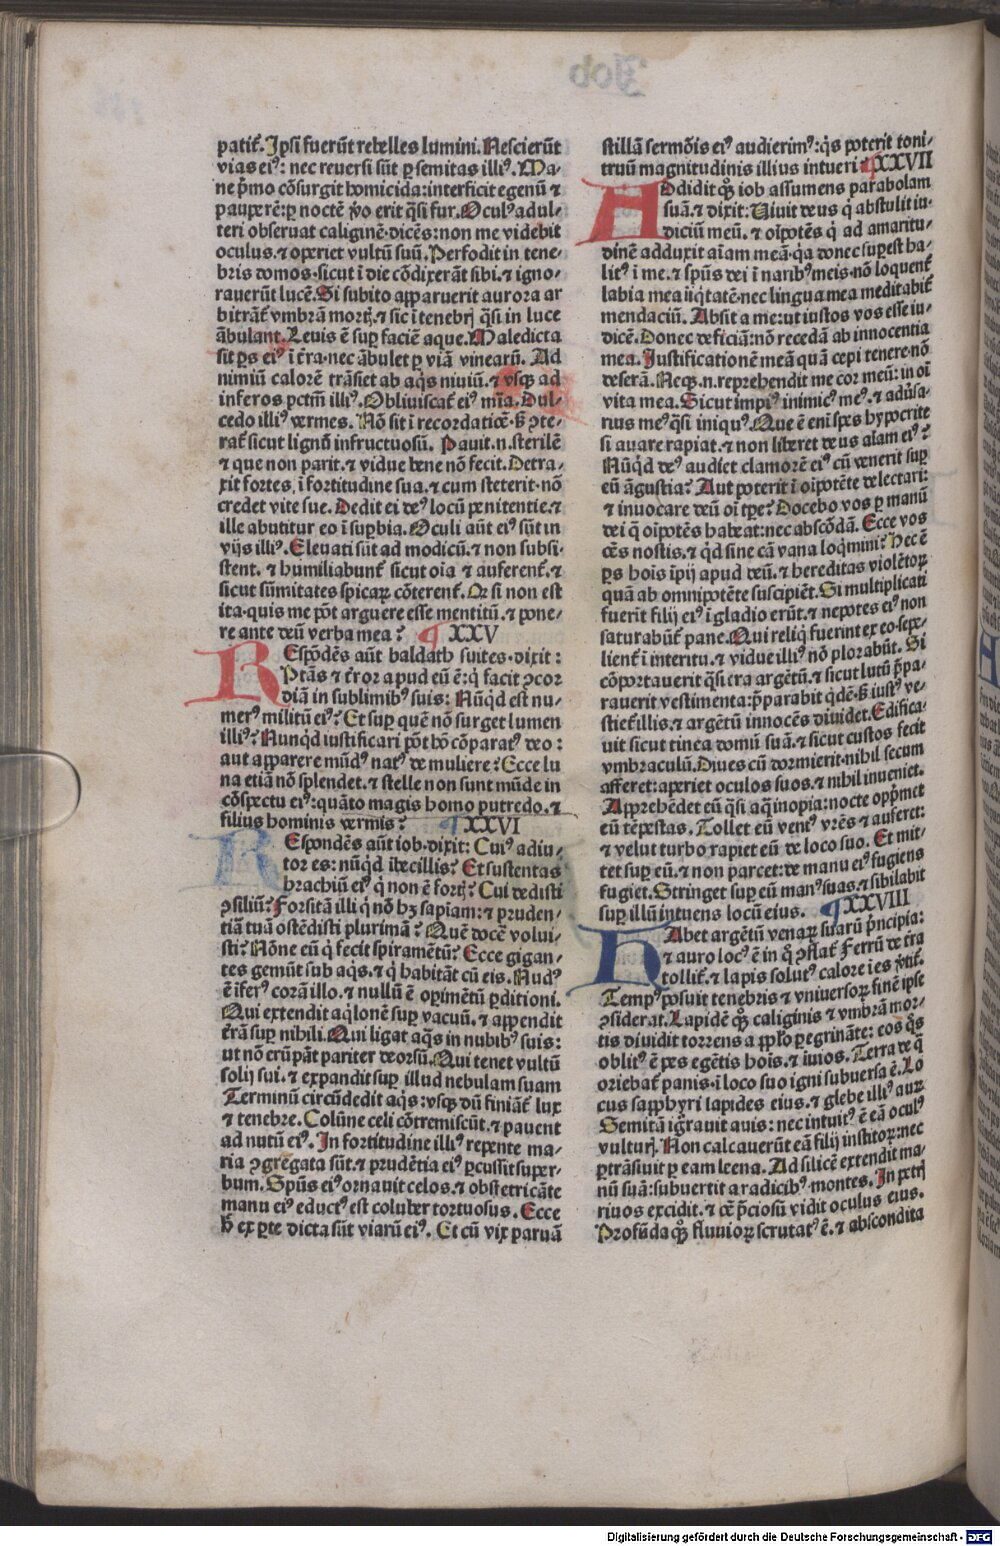 Job
patit᷑. Ipsi fuerūt rebelles lumini. Nescierūt
vias eiꝰ: nec reuersi sūt ꝑ semitas illiꝰ. Ma-
ne p̄mo cōsurgit homicida: interficit egenū ⁊
pauperē: ꝑ noctē v̓o erit q̄si fur. Oculꝰ adul-
teri obseruat caliginē. dicēs: non me videbit
oculus. ⁊ operiet vultū suū. Perfodit in tene-
bris domos. sicut ī die cōdixerāt sibi. ⁊ igno-
rauerūt lucē. Si subito apparuerit aurora ar
bitrāt᷑ vmbrā mortꝭ. ⁊ sic ī tenebrꝭ q̄si in luce
ābulant. Leuis ē suꝑ faciē aque. Maledicta
sit ꝑs eiꝰ ī t̄ra. nec ābulet ꝑ viā vinearū. Ad
nimiū calorē trāsiet ab aq̄s niuiū. ⁊ vsqꝫ ad
inferos pctm̄ illiꝰ. Obliuiscat᷑ eiꝰ mīa. Dul-
cedo illiꝰ vermes. Nō sit ī recordatiōe. sꝫ ꝯte-
rat᷑ sicut lignō infructuosū. Pauit .n. sterilē
⁊ que non parit. ⁊ vidue bene nō fecit. Detra-
xit fortes. ī fortitudine sua. ⁊ cum steterit. nō
credet vite sue. Dedit ei deꝰ locū penitentie. ⁊
ille abutitur eo ī suꝑbia. Oculi aūt eiꝰ sūt in
vijs illiꝰ. Eleuati sūt ad modicū. ⁊ non subsi-
stent. ⁊ humiliabunt᷑ sicut oīa ⁊ auferent᷑. ⁊
sicut sūmitates spicaꝝ cōterent᷑. Qr̄ si non est
ita. quis me pōt arguere esse mentitū. ⁊ pone-
re ante deū verba mea? ¶ XXV
REspōdēs aūt baldath suites. dixit:
Ptās ⁊ t̄ror apud eū ē: q̄ facit ꝯcor
diā in sublimibꝰ suis: Nūqd est nu-
merꝰ militū eiꝰ? Et suꝑ quē nō surget lumen
illiꝰ? Nunqd iustificari pōt hō cōparatꝰ deo:
aut apparere mūdꝰ natꝰ de muliere? Ecce lu
na etiā nō splendet. ⁊ stelle non sunt mūde in
cōspectu eiꝰ: quāto magis homo putredo. ⁊
filius hominis vermis? ¶ XXVI
REspondēs aūt iob. dixit: Cuiꝰ adiu-
tor es: nūqd ībecillis? Et sustentas
brachiū eiꝰ q̄ non ē fortꝭ? Cui dedisti
ꝯsiliū? Forsitā illi q̄ nō hꝫ sapīam: ⁊ pruden-
tiā tuā ostēdisti plurimā? Quē docē volui-
sti? Nōne eū q̄ fecit spiramētū? Ecce gigan-
tes gemūt sub aq̄s. ⁊ q̄ habitāt cū eis. Nudꝰ
ē īferꝰ corā illo. ⁊ nullū ē operimētū ꝑditioni.
Qui extendit aqlonē suꝑ vacuū. ⁊ appendit
t̄rā suꝑ nihili. Qui ligat aq̄s in nubibꝰ suis:
ut nō erūpāt pariter deorsū. Qui tenet vultū
solij sui. ⁊ expandit suꝑ illud nebulam suam
Terminū circūdedit aq̄s: vsqꝫ dū finiāt᷑ lux
⁊ tenebre. Colūne celi cōtremiscūt. ⁊ pauent
ad nutū eiꝰ. In fortitudine illiꝰ repente ma-
ria ꝯgregata sūt. ⁊ prudētia eiꝰ ꝑcussit super-
bum. Spūs eiꝰ ornauit celos. ⁊ obstetricāte
manu eiꝰ eductꝰ est coluber tortuosus. Ecce
h̄ ex ꝑte dicta sūt viarū eiꝰ. Et cū vix paruā
stillā sermōis eiꝰ audierimꝰ: q̄s poterit toni-
truū magnitudinis illius intueri ¶ XXVII
ADdidit qꝫ iob assumens parabolam
suā. ⁊ dixit: Viuit deus q̄ abstulit iu-
diciū meū. ⁊ oīpotēs q̄ ad amaritu-
dinē adduxit aīam meā. q̄a donec suꝑest ha-
litꝰ ī me. ⁊ spūs dei ī naribꝰ meis. nō loquent᷑
labia mea iiq̄tatē. nec lingua mea meditabit᷑
mendaciū. Absit a me: ut iustos vos esse iu-
dicē. Donec deficiā: nō recedā ab innocentia
mea. Iustificationē meā quā cepi tenere. nō
deserā. Neqꝫ .n. reprehendit me cor meū: in oī
vita mea. Sicut impiꝰ inimicꝰ meꝰ. ⁊ adūsa-
rius meꝰ q̄si iniquꝰ. Que ē enī spes hypocrite
si auare rapiat. ⁊ non liberet deus aīam eiꝰ?
Nūqd deꝰ audiet clamorē eiꝰ cū venerit suꝑ
eū āgustia? Aut poterit ī oīpotēte delectari:
⁊ inuocare deū oī tꝑe? Docebo vos ꝑ manū
dei q̄ oīpotēs habeat: nec abscōdā. Ecce vos
oēs nostis. ⁊ qd sine cā vana loqmini? Hec ē
ꝑs hoīs īpij apud deū. ⁊ hereditas violētoꝝ
quā ab omnipotēte suscipiēt. Si multiplicati
fuerīt filij eiꝰ ī gladio erūt. ⁊ nepotes eiꝰ non
saturabūt᷑ pane. Qui reliq̄ fuerint ex eo. sepe-
lient᷑ ī interitu. ⁊ vidue illiꝰ nō plorabūt. Si
cōportauerit q̄si t̄ra argētū. ⁊ sicut lutū p̄pa-
rauerit vestimenta: p̄parabit qdē. sꝫ iustꝰ ve-
stiet᷑ illis. ⁊ argētū innocēs diuidet. Edifica-
uit sicut tinea domū suā. ⁊ sicut custos fecit
vmbraculū. Diues cū dormierit. nihil secum
afferet: aperiet oculos suos. ⁊ nihil inueniet.
Apprehēdet eū q̄si aq̄ inopia: nocte opp̄met
eū tēpestas. Tollet eū ventꝰ vrēs ⁊ auferet:
⁊ velut turbo rapiet eū de loco suo. Et mit-
tet suꝑ eū. ⁊ non parcet: de manu eiꝰ fugiens
fugiet. Stringet suꝑ eū manꝰ suas. ⁊ sibilabit
suꝑ illū intuens locū eius. ¶ XXVIII
HAbet argētū venaꝝ suarū p̄ncipia:
⁊ auro locꝰ ē in q̄ ꝯflat᷑. Ferrū de t̄ra
tollit᷑. ⁊ lapis solutꝰ calore ī es v̓tit᷑.
Tempꝰ posuit tenebris ⁊ vniuersoꝝ finē ipse
ꝯsiderat. Lapidē qꝫ caliginis ⁊ vmbrā mor-
tis diuidit torrens a pplo ꝑegrināte: eos q̄s
oblitꝰ ē pes egētis hoīs. ⁊ īuios. Terra de q̄
oriebat᷑ panis. ī loco suo igni subuersa ē. Lo
cus sapphyri lapides eius. ⁊ glebe illiꝰ auꝝ
Semitā iḡrauit auis: nec intuitꝰ ē eā oculꝰ
vulturꝭ. Non calcauerūt eā filij institoꝝ: nec
ꝑtrāsiuit ꝑ eam leena. Ad silicē extendit ma-
nū suā: subuertit a radicibꝰ montes. In petrꝭ
riuos excidit. ⁊ oē p̄ciosū vidit oculus eius.
Profūda qꝫ fluuioꝝ scrutatꝰ ē. ⁊ abscondita
Digitalisierung gefördert durch die Deutsche Forschungsgemeinschaft - DFG